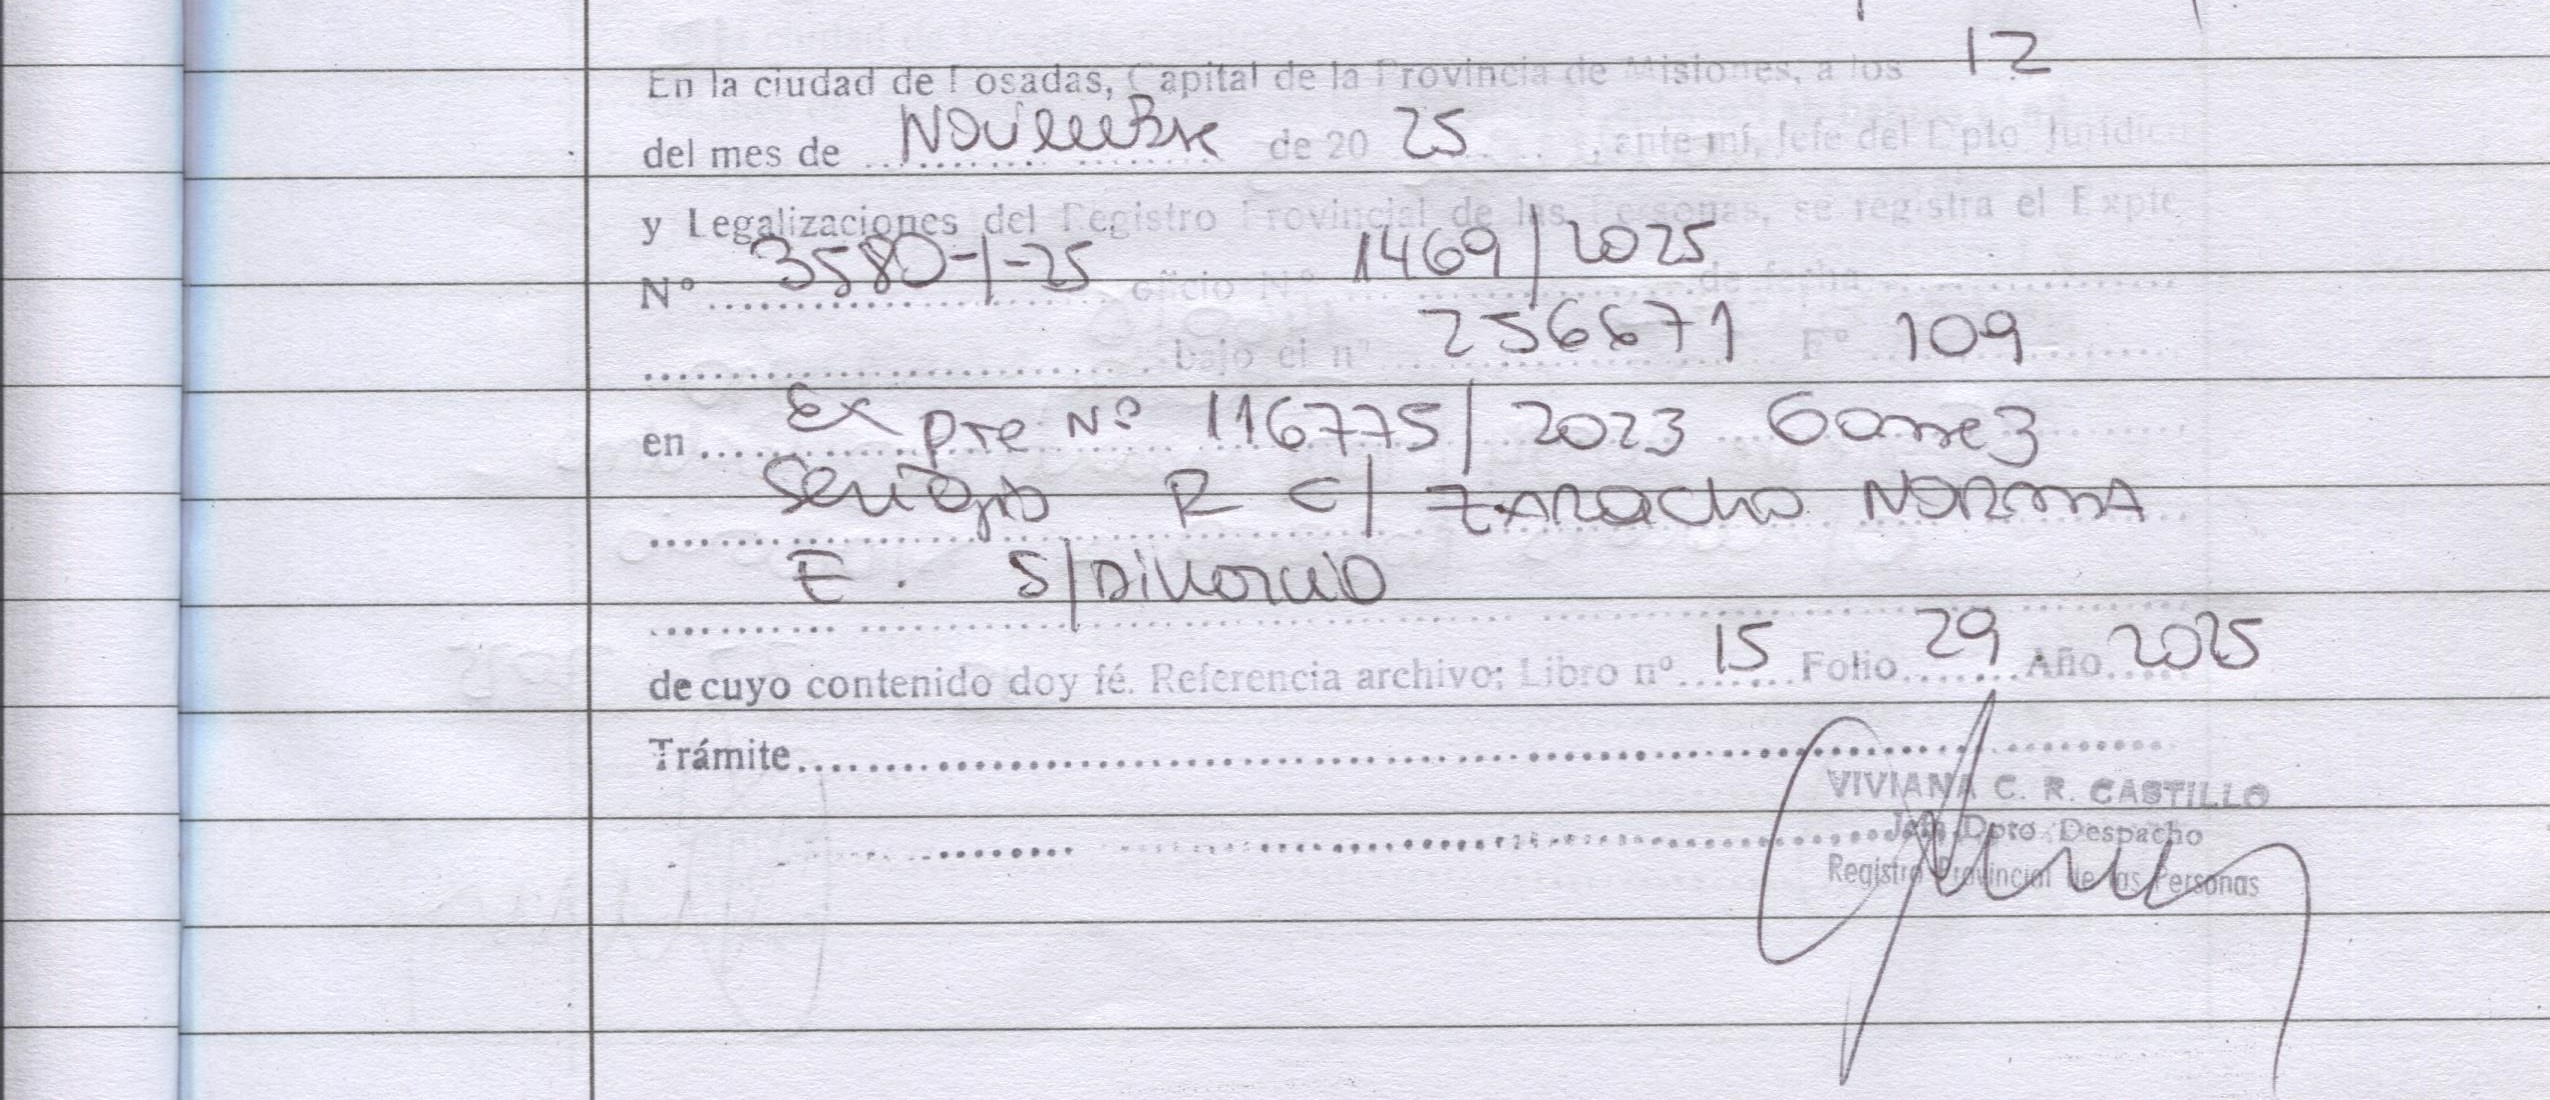 En la ciudad de Posadas, Capital de la Provincia de Misiones, a los 12
del mes de Noviembre de 20 25 , ante mí, Jefe del Dpto Jurídico
y Legalizaciones del Registro Provincial de las Personas, se registra el Expte
Nº 3580-1-25 oficio Nº 1469/2025 de fecha
bajo el nº 256671 Fº 109
en Expte Nº 116775/2023 Gomez
Sergio R c/ ZARACHO NORMA
E. S/DIVORCIO
de cuyo contenido doy fé. Referencia archivo; Libro nº 15 Folio 29 Año 2025
Trámite
VIVIANA C. R. CASTILLO
Jefa Dpto Despacho
Registro Provincial de las Personas